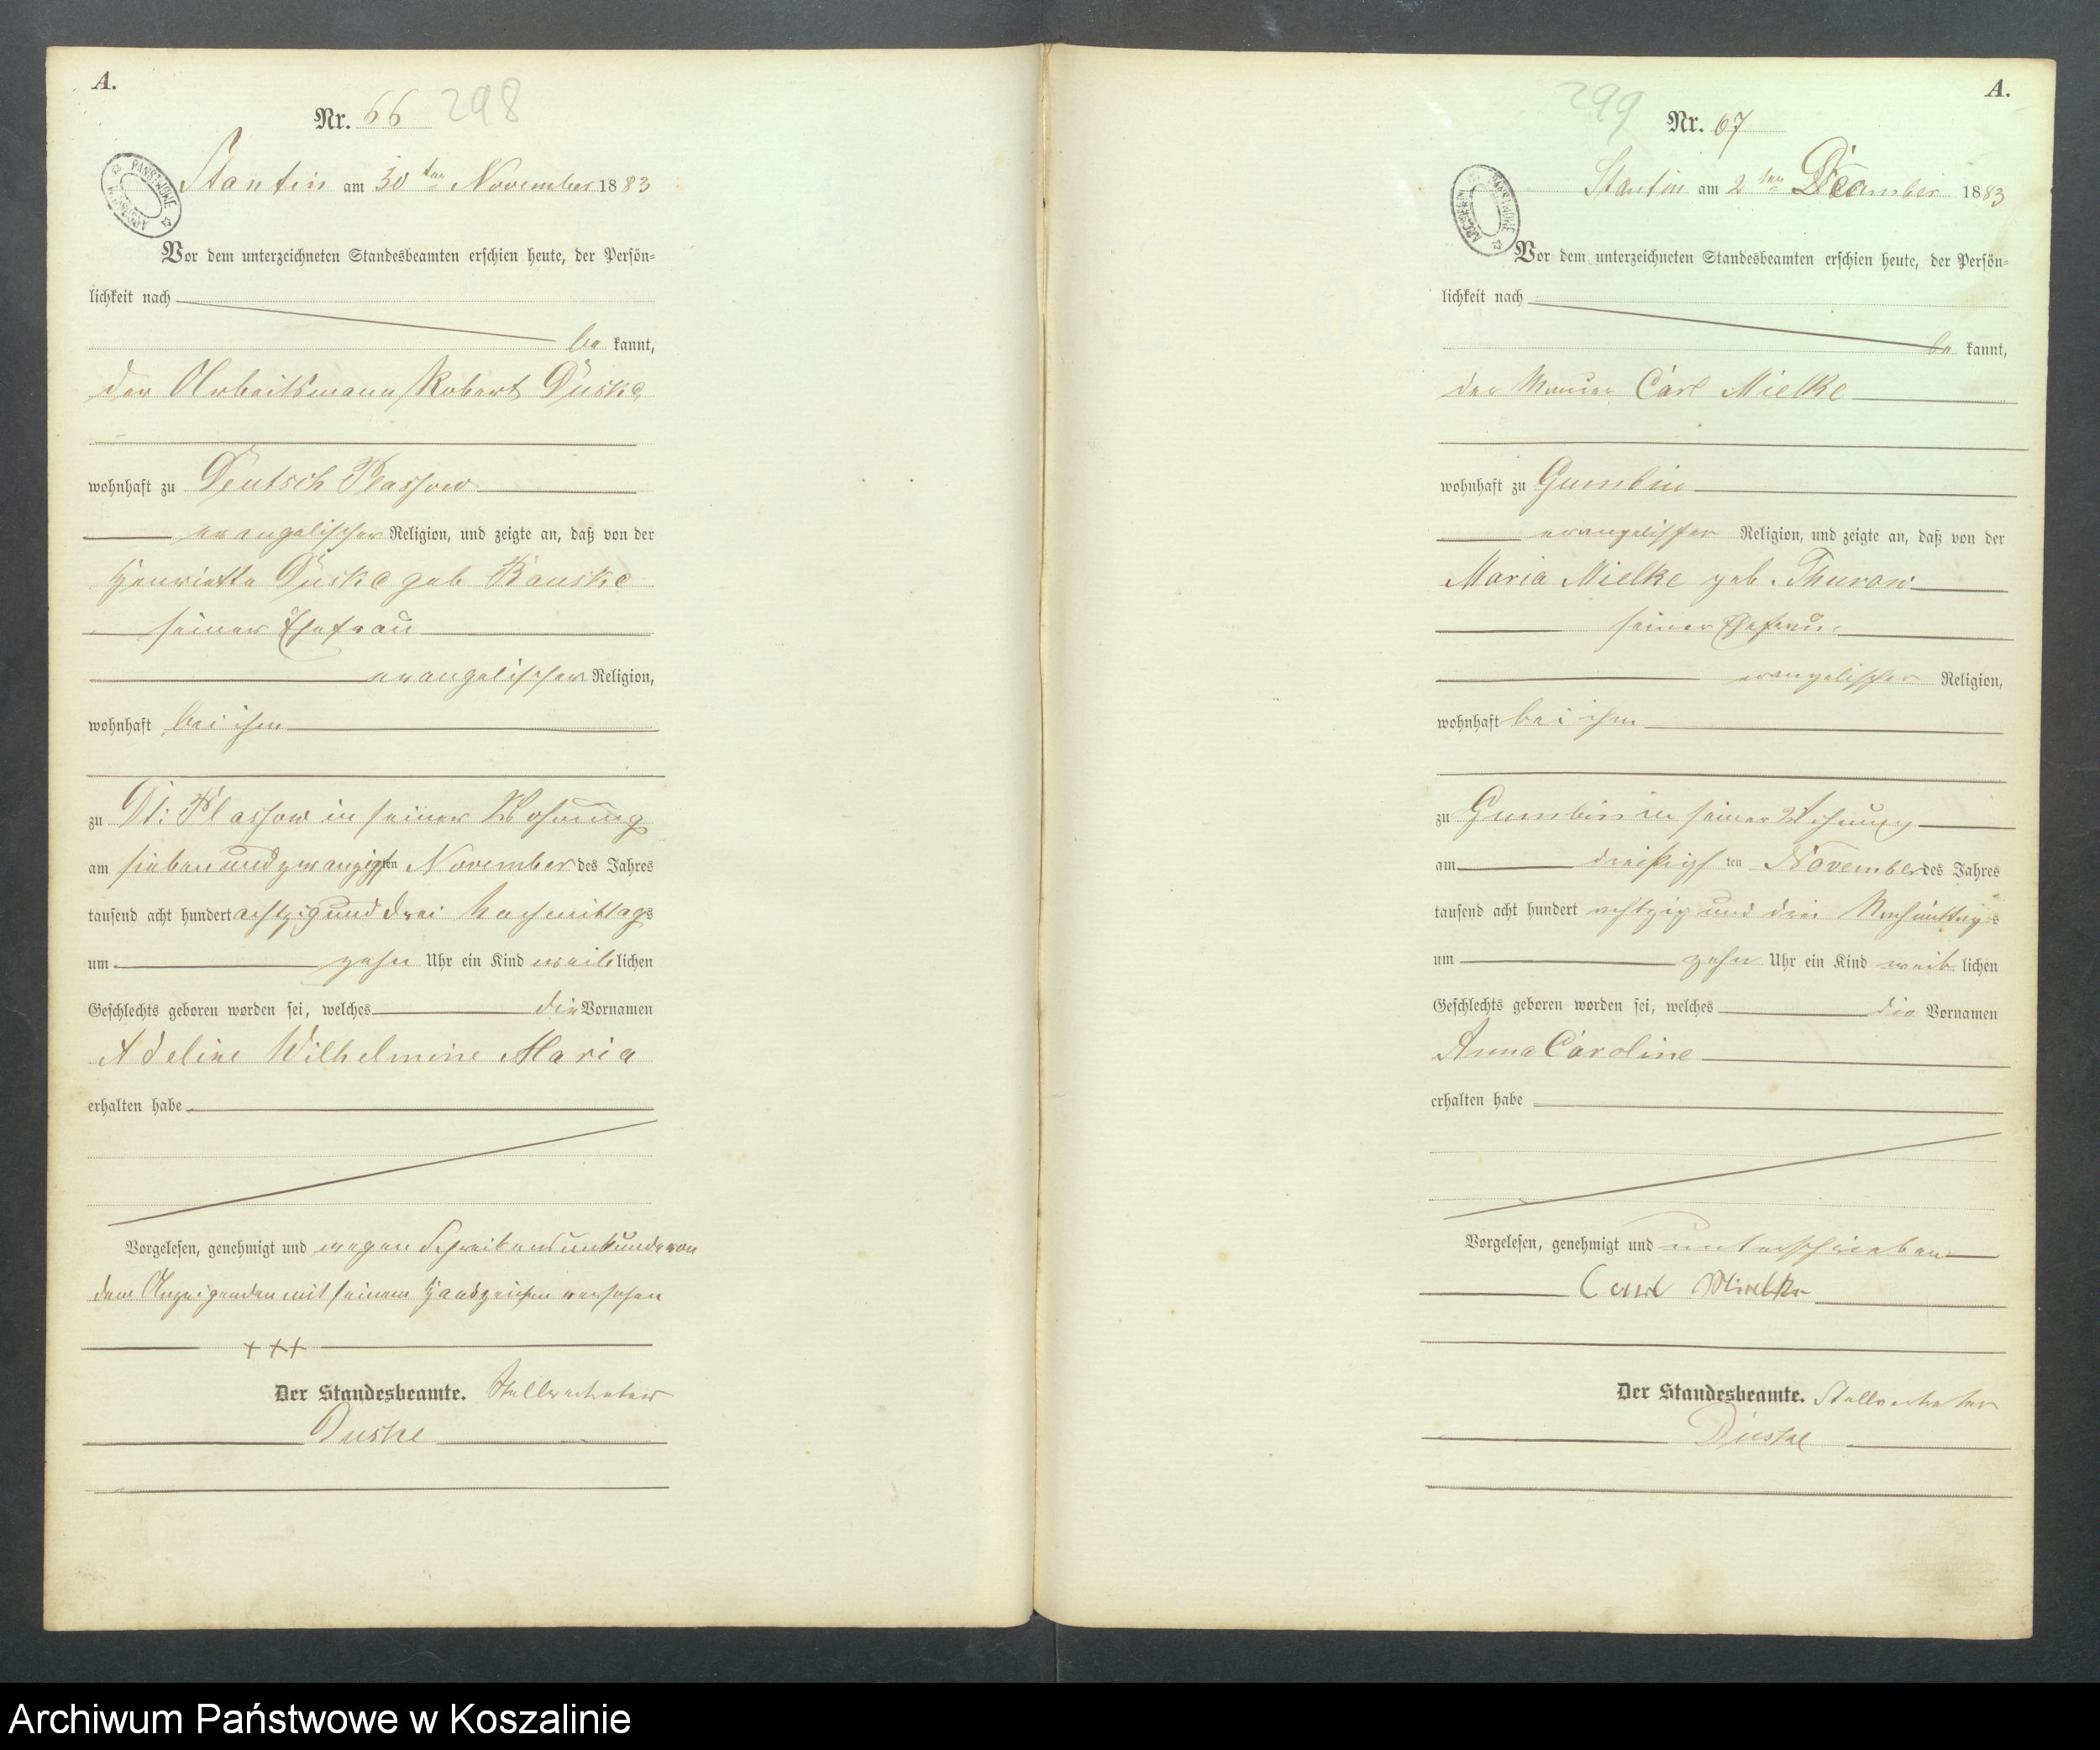 A.
Nr. 66 298
ARCHIWUM PAŃSTWOWE
Stantin am 30ten November 1883
Vor dem unterzeichneten Standesbeamten erschien heute, der Persön=
lichkeit nach
be kannt,
der Arbeitsmann Robert Duske
wohnhaft zu Deutsch Plassow
evangelischer Religion, und zeigte an, daß von der
Henriette Duske geb Bauske
seiner Ehefrau
evangelischer Religion,
wohnhaft bei ihm
zu Dt: Plassow in seiner Wohnung
am siebenundzwanzigsten November des Jahres
tausend acht hundert achtzig und drei Nachmittags
um zehn Uhr ein Kind weiblichen
Geschlechts geboren worden sei, welches die Vornamen
Adeline Wilhelmine Maria
erhalten habe
Vorgelesen, genehmigt und wegen Schreibensunkunde von
dem Anzeigenden mit seinem Handzeichen versehen
+++
Der Standesbeamte. Stellvertreter
Duske
A.
299 Nr. 67
ARCHIWUM PAŃSTWOWE
Stantin am 2ten December 1883
Vor dem unterzeichneten Standesbeamten erschien heute, der Persön=
lichkeit nach
be kannt,
der Maurer Carl Mielke
wohnhaft zu Gumbin
evangelischer Religion, und zeigte an, daß von der
Maria Mielke geb. Thurow
seiner Ehefrau
evangelischer Religion,
wohnhaft bei ihm
zu Gumbin in seiner Wohnung
am dreißigsten November des Jahres
tausend acht hundert achtzig und drei Nachmittags
um zehn Uhr ein Kind weiblichen
Geschlechts geboren worden sei, welches die Vornamen
Anna Caroline
erhalten habe
Vorgelesen, genehmigt und unterschrieben
Carl Mielke
Der Standesbeamte. Stellvertreter
Duske
Archiwum Państwowe w Koszalinie